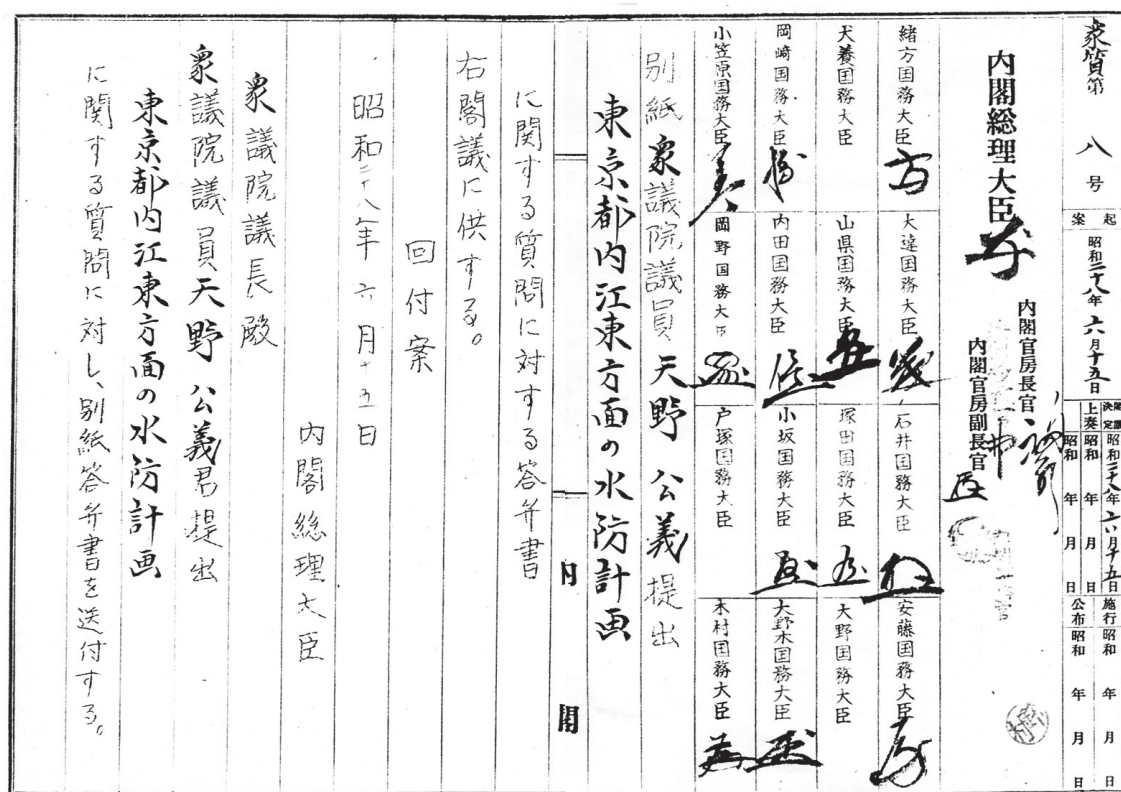 衆質第八号
起案 昭和二十八年六月十五日
閣議決定 昭和二十八年六月十五日
上奏 昭和 年 月 日
昭和 年 月 日
施行 昭和 年 月 日
公布 昭和 年 月 日
内閣総理大臣
内閣官房長官
内閣官房副長官
緒方国務大臣
大達国務大臣
石井国務大臣
安藤国務大臣
犬養国務大臣
山県国務大臣
塚田国務大臣
大野国務大臣
岡崎国務大臣
内田国務大臣
小坂国務大臣
大野木国務大臣
小笠原国務大臣
岡野国務大臣
戸塚国務大臣
木村国務大臣
別紙衆議院議員天野公義提出
東京都内江東方面の水防計画
に関する質問に対する答弁書
右閣議に供する。
回付案
昭和二十八年六月十五日
内閣総理大臣
衆議院議長殿
衆議院議員天野公義君提出
東京都内江東方面の水防計画
に関する質問に対し、別紙答弁書を送付する。
内閣